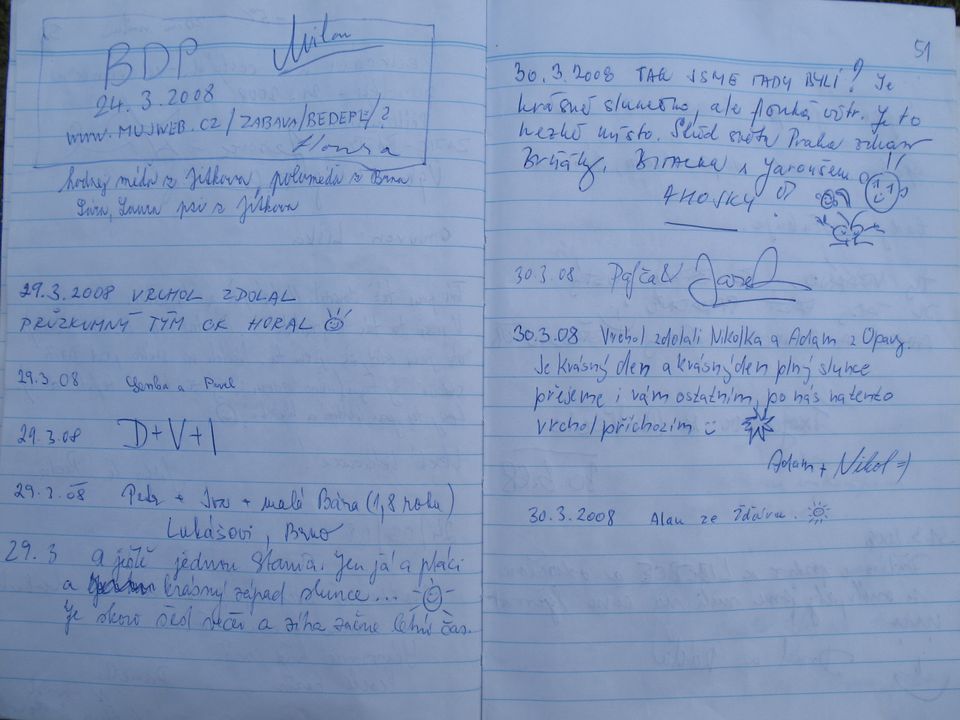 BDP Milan
24.3.2008
www.MUJWEB.CZ/ZABAVA/BEDEPE/?
Honza
hodnej méďa z Jitkova, poloméďa z Brna
Laura psi z Jitkova
29.3.2008 VRCHOL ZDOLAL
PRŮZKUMNÝ TÝM CK HORAL
29.3.08 a Pavel
29.3.08 D+V+I
29.3.08 Petr + Iva + malá Bára (1,8 roku)
Lukášovi, Brno
29.3 a ještě jednou Standa. Jen já a ptáci
a krásný západ slunce...
Je skoro šed večer a zítra začne letní čas.
51
30.3.2008 TAK JSME TADY BYLI! Je
krásně slunečno, ale fouká vítr. Je to
hezké místo. Střed světa Praha zdraví
s Jaroušem
AHOJKY
30.3.08
30.3.08 Vrchol zdolali Nikolka a Adam z Opavy.
Je krásný den a krásný den plný slunce
přejeme i vám ostatním, po nás na tento
vrchol příchozím
Adam + Nikol =)
30.3.2008 Alan ze Žďáru.